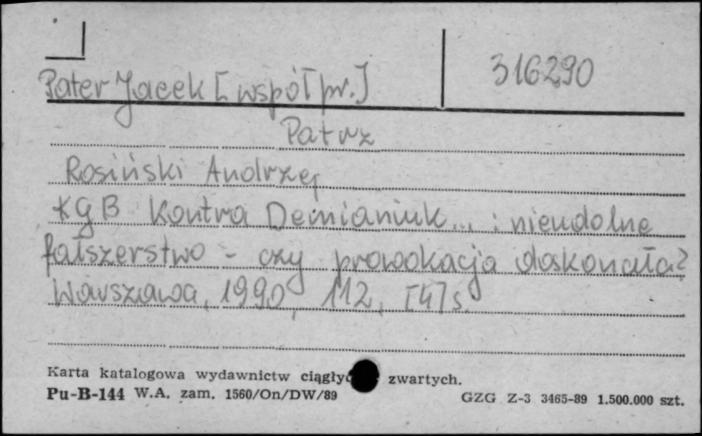 Pater Jacek [współpr.]
316290
Patrz
Rosiński Andrzej
KGB kontra Demianiuk... : nieudolne
fałszerstwo - czy prowokacja doskonała?
Warszawa, 1990, 112, [4] s.
Karta katalogowa wydawnictw zwartych.
Pu-B-144 W.A. zam. 1560/On/DW/89
GZG Z-3 3465-89 1.500.000 szt.